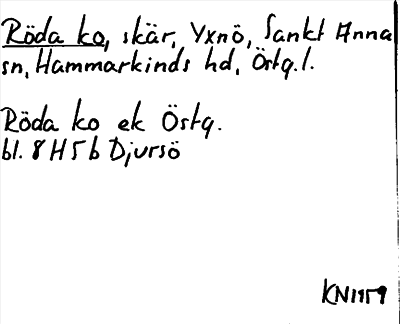 Röda ko, skär, Yxnö, Sankt Anna
sn, Hammarkinds hd, Östg.l.
Röda ko ek Östg.
bl. 8 H 5 b Djursö
KN1959